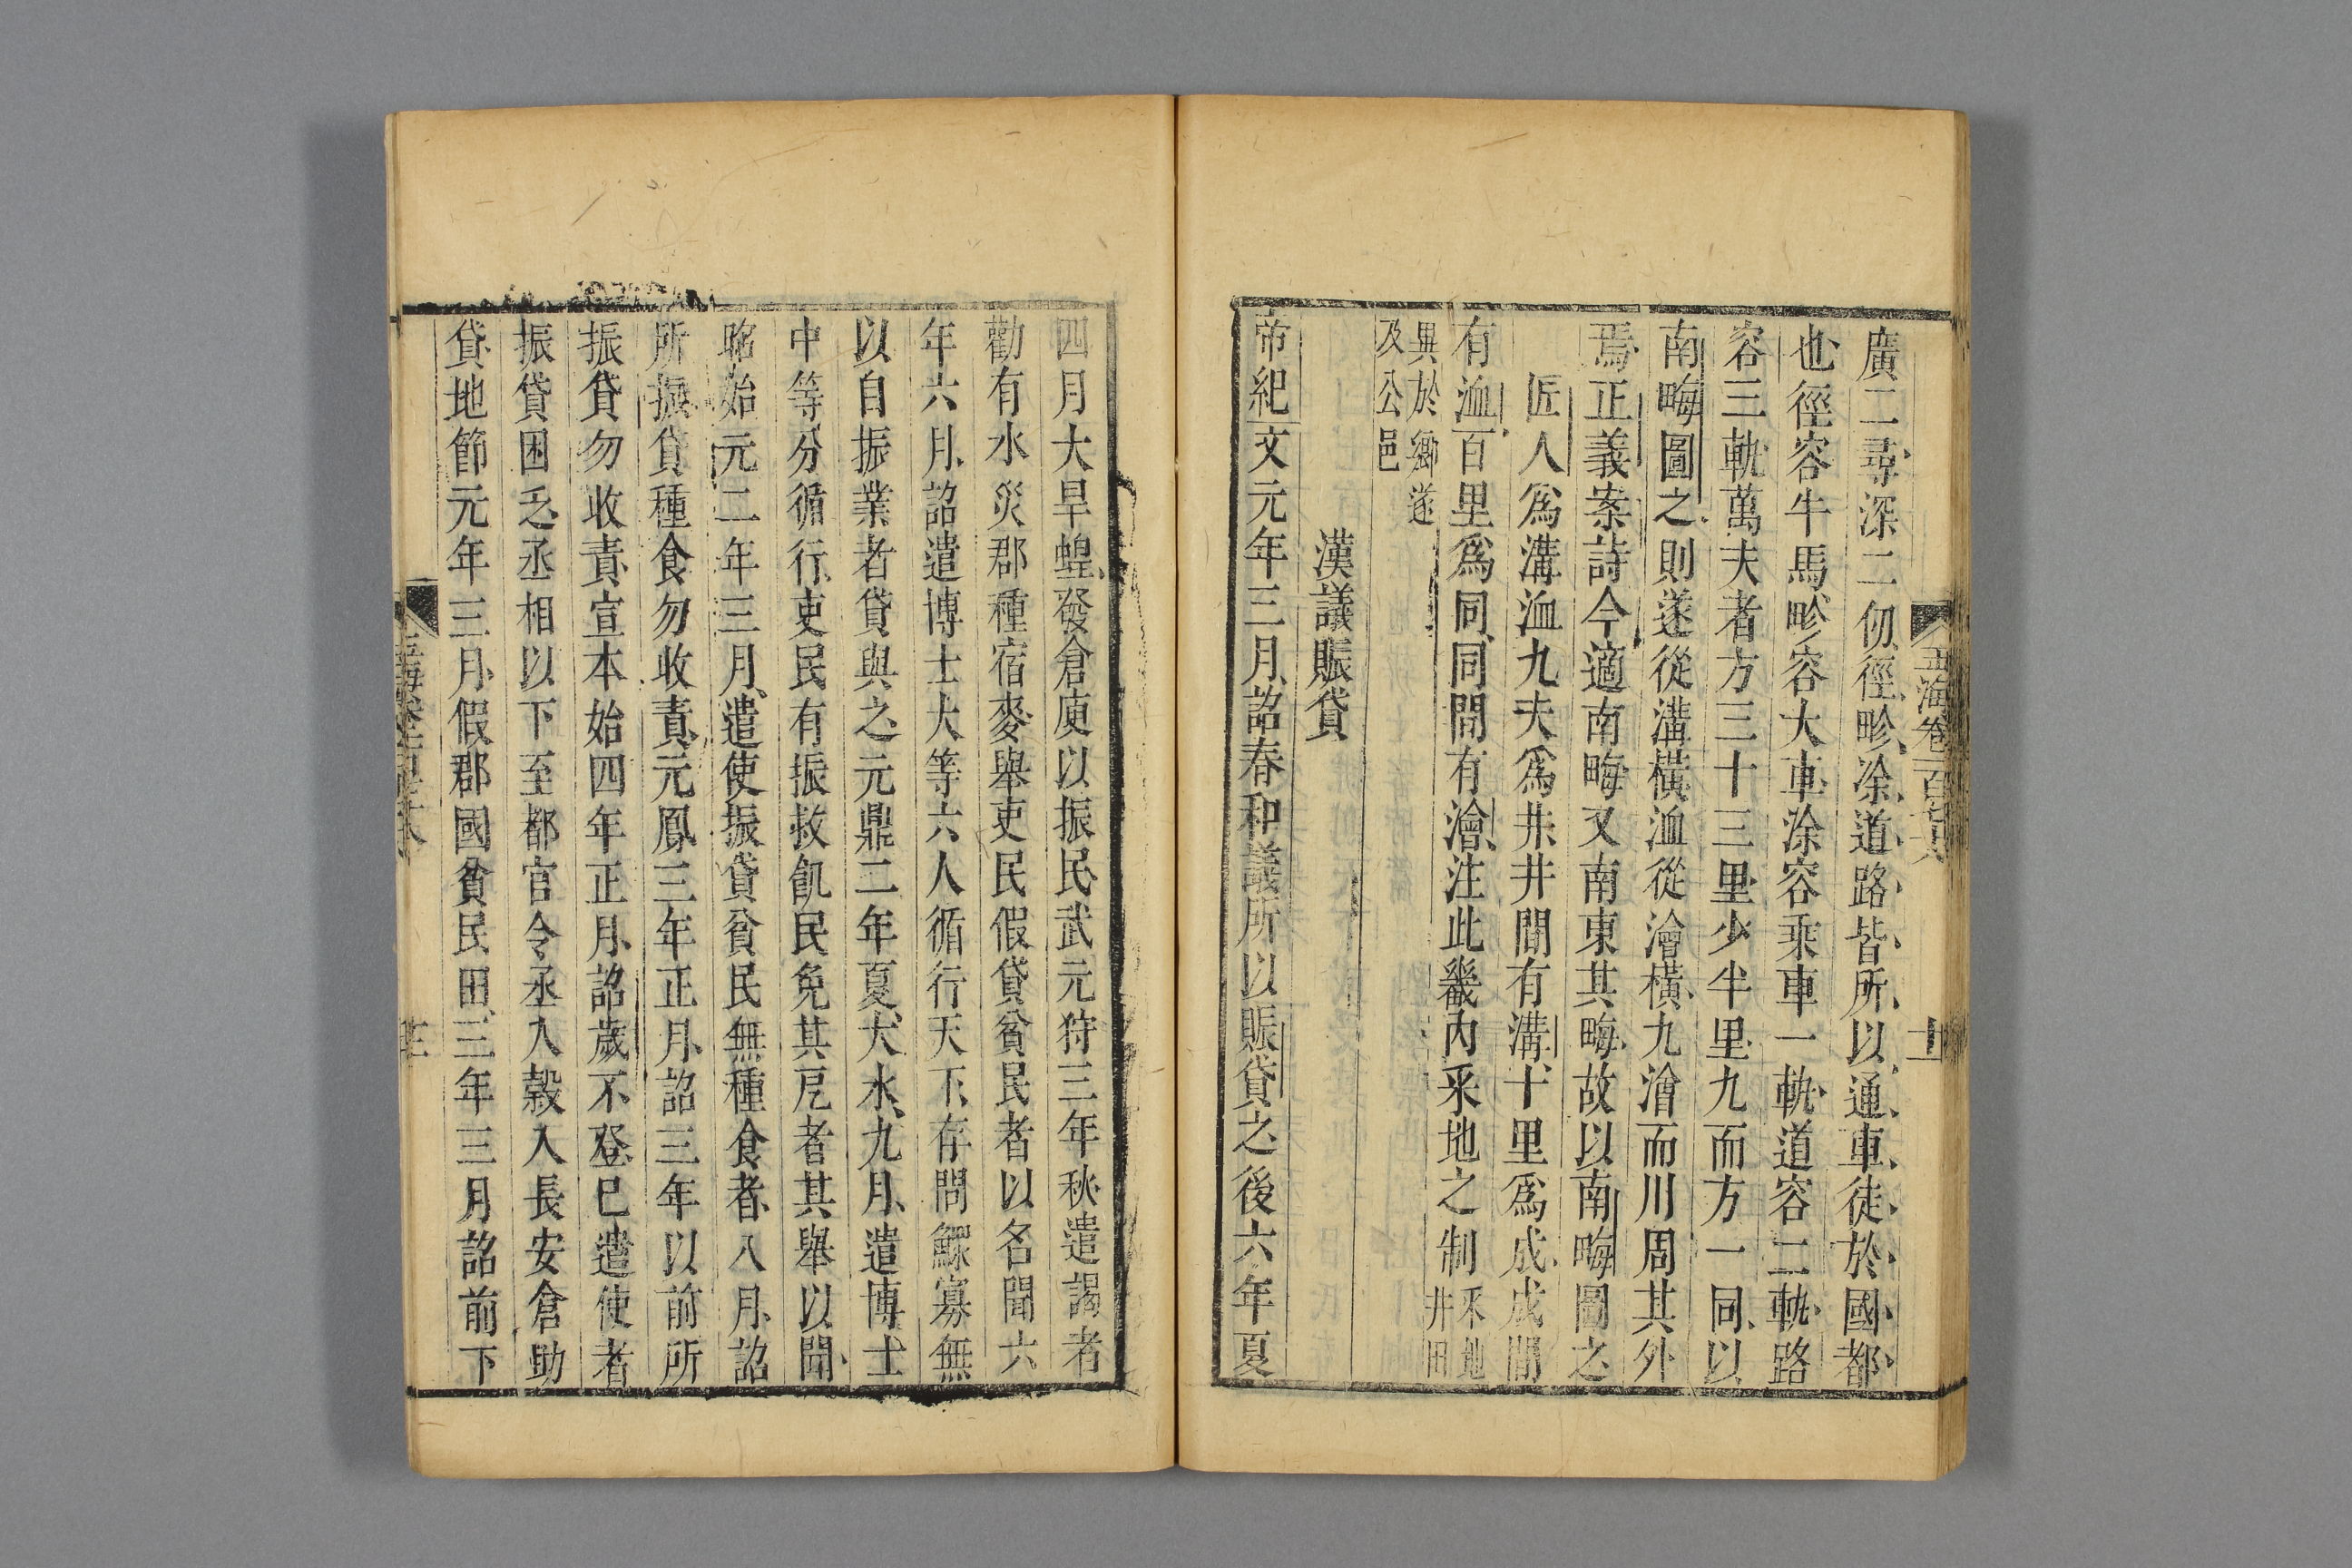 廣二尋深二仞徑畛凃道路皆所以通車徒於國都
也徑容牛馬畛容大車涂容乘車一軌道容二軌路
容三軌萬夫者方三十三里少半里九而方一同以
南畮圖之則遂從溝橫洫從澮橫九澮而川周其外
焉正義案詩今適南畮又南東其畮故以南畮圖之
匠人爲溝洫九夫爲井井間有溝十里爲成成間
有洫百里爲同同間有澮注此畿內采地之制采地井田
異於鄉遂及公邑
漢議賑貸
帝紀文元年三月詔春和議所以賑貸之後六年夏
四月大旱蝗發倉庾以振民武元狩三年秋遣謁者
勸有水災郡種宿麥舉吏民假貸貧民者以名聞六
年六月詔遣博士大等六人循行天下存問鰥寡無
以自振業者貸與之元鼎二年夏大水九月遣博士
中等分循行吏民有振救飢民免其戹者其舉以聞
昭始元二年三月遣使振貸貧民無種食者八月詔
所振貸種食勿收責元鳳三年正月詔三年以前所
振貸勿收責宣本始四年正月詔歲不登已遣使者
振貸困乏丞相以下至都官令丞入穀入長安倉助
貸地節元年三月假郡國貧民田三年三月詔前下